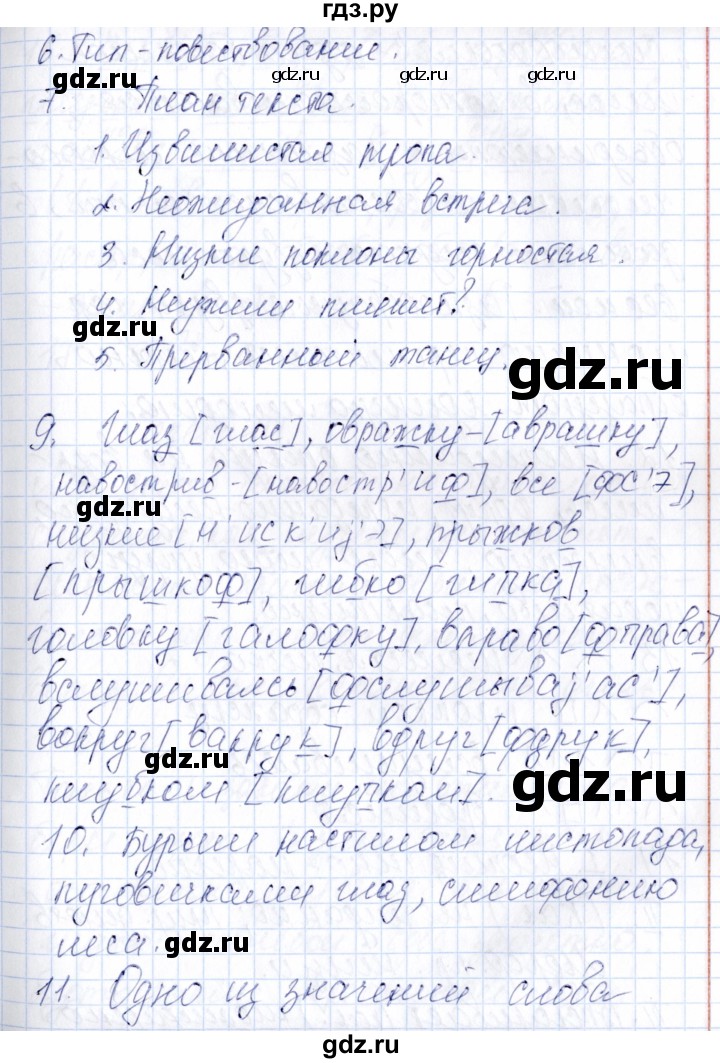 гдз.ру
6. Тип - повествование.
gdz.ru gdz.ru
7. План текста.
gdz.ru
1. Извилистая тропа.
2. Неожиданная встреча.
3. Низкие поклоны горностая.
4. Неужели пляшет?
gdz.ru
5. Прерванный танец.
gdz.ru
9. Глаз [глас], овражку-[аврашку],
навострив-[навостр'иф], все [фс'э],
gdz.ru
низкие [н'иск'иj'э], прыжков
[прышкоф], гибко [гипка],
головку [галофку], вправо [фправа],
вслушиваясь [фслушываj'ас'],
вокруг [вакрук], вдруг [фдрук],
gdz.ru
клубком [клупком].
gdz.ru
10. Бурым настилом листопада,
пуговичками глаз, симфонию
леса.
gdz.ru
11. Одно из значений слова
gdz.ru gdz.ru